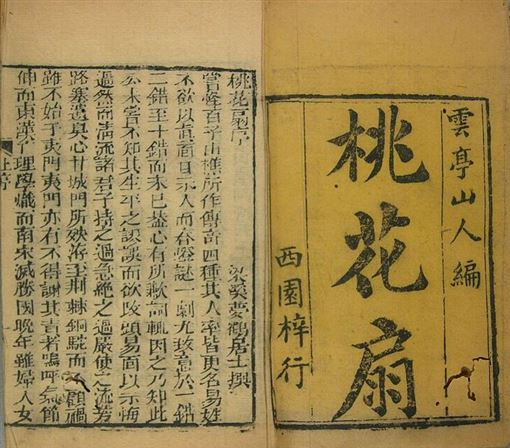 雲亭山人編
桃花扇
西園梓行
桃花扇序
梁溪夢鶴居士撰
嘗怪百子山樵所作傳奇四種其人率皆更名易姓
不欲以真面目示人而春燈謎一劇尤致意於一錯
二錯至十錯而未已蓋心有所歉詞輒因之乃知此
公未嘗不知其生平之謬誤而欲改頭易面以示悔
過然而清流諸君子持之過急絕之過嚴使之流芳
路塞遺臭心甘城門所殃洊至荊棘銅駝而不顧禍
雖不始于夷門夷門亦有不得謝其責者嗚呼氣節
伸而東漢亡理學熾而南宋滅勝國晚年雖婦人女